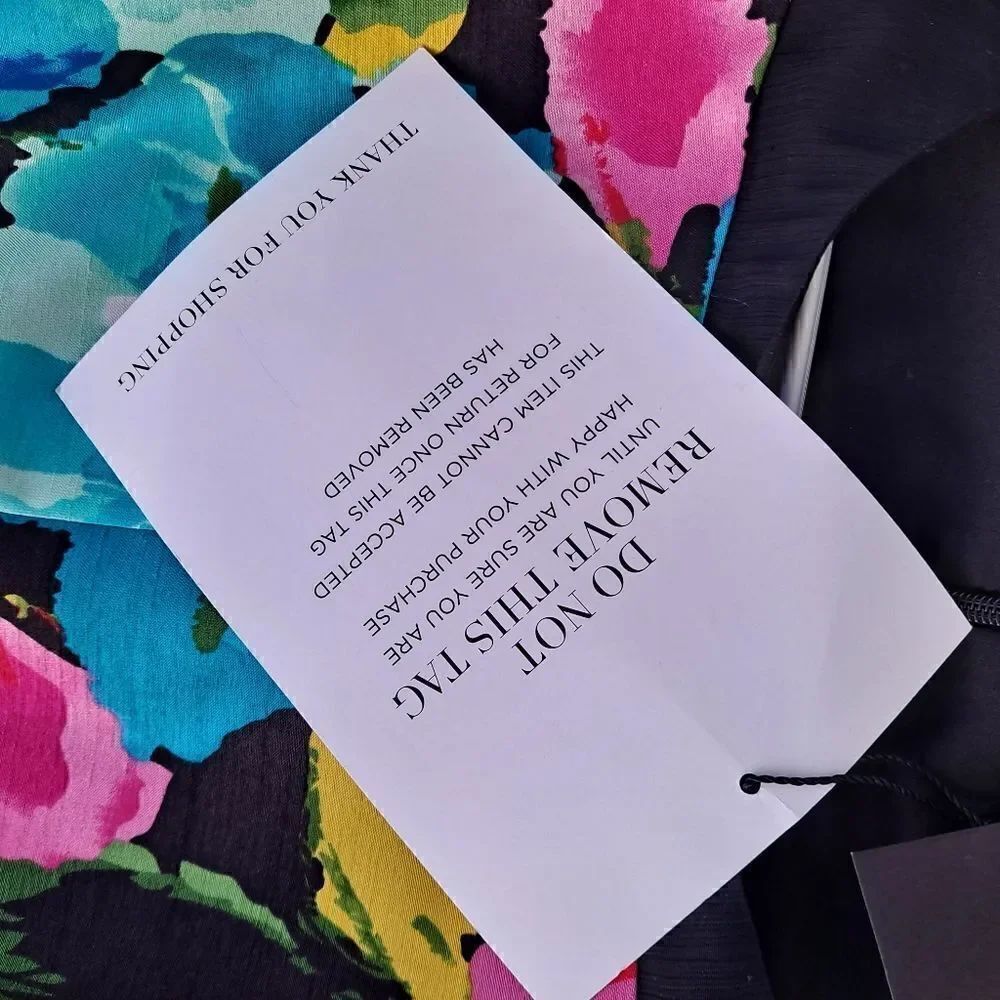 DO NOT
REMOVE THIS TAG
UNTIL YOU ARE SURE YOU ARE
HAPPY WITH YOUR PURCHASE
THIS ITEM CANNOT BE ACCEPTED
FOR RETURN ONCE THIS TAG
HAS BEEN REMOVED
THANK YOU FOR SHOPPING